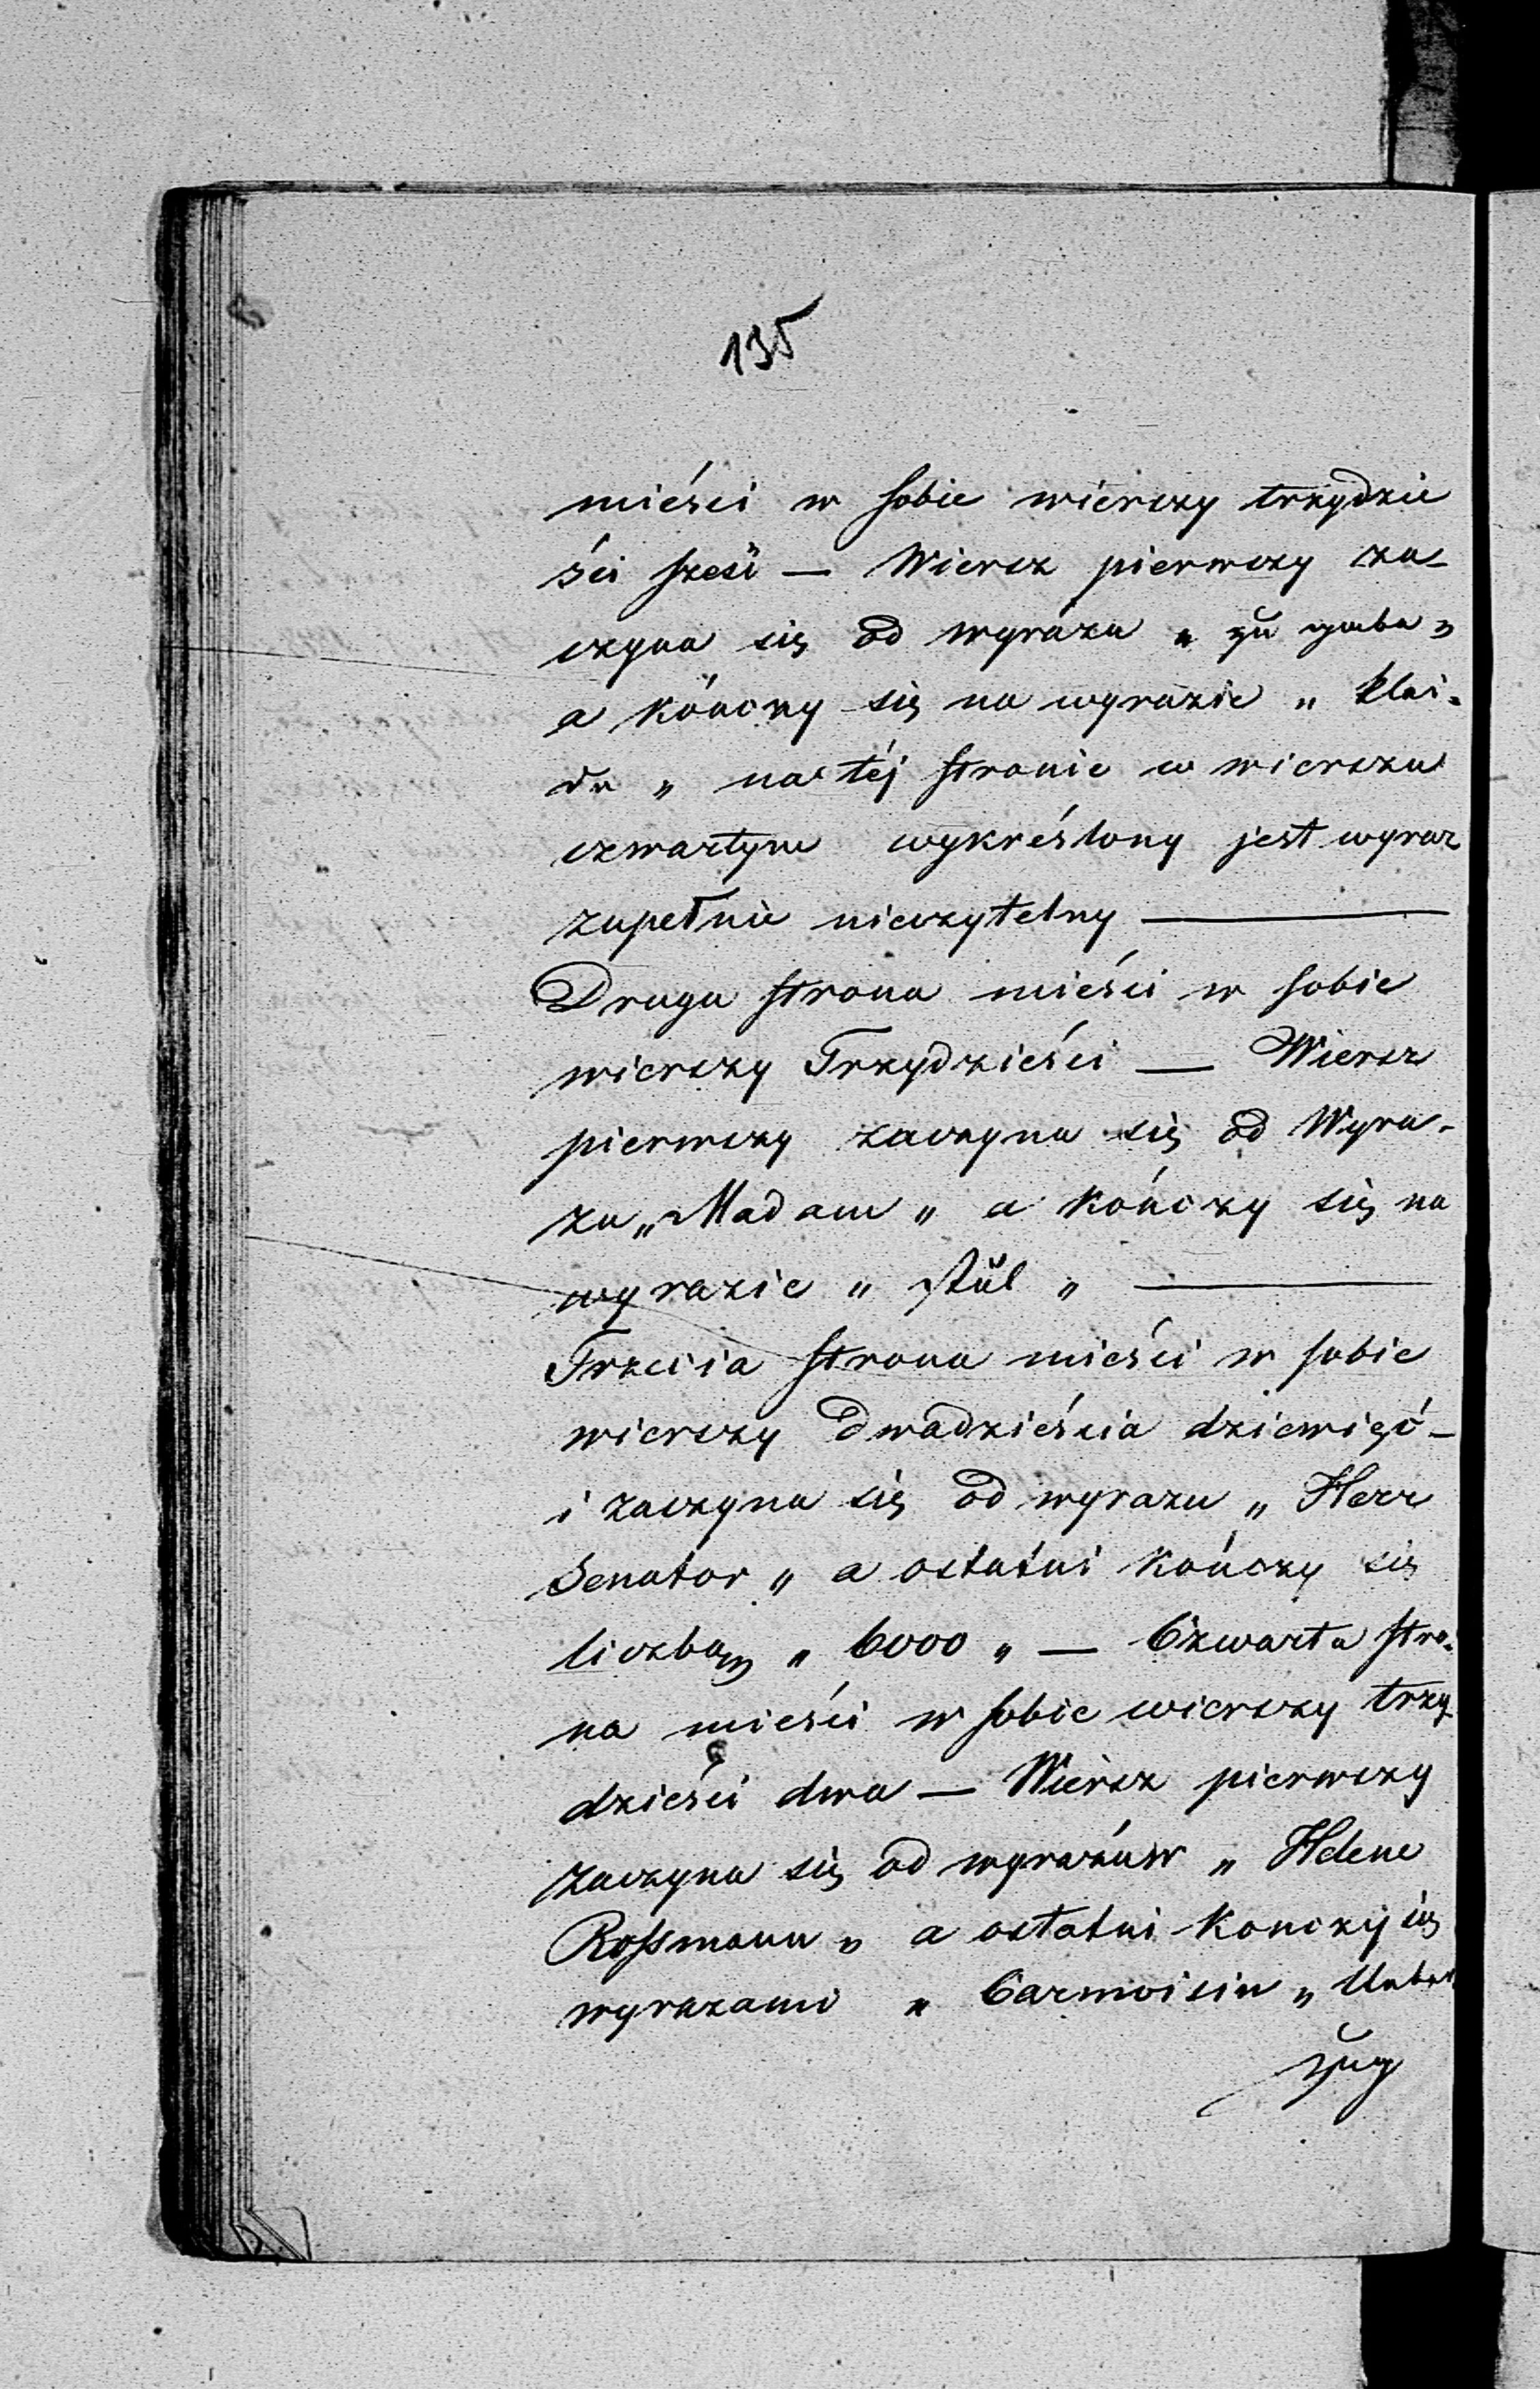 135
mieści w sobie wierszy trzydzie
ści sześć — Wiersz pierwszy za-
czyna się od wyrazu „ zu „
a kończy się na wyrazie „ Klai-
da „ na téj stronie w wierszu
czwartym wykréślony jest wyraz
zupełnie nieczytelny —
Druga strona mieści w sobie
wierszy Trzydzieści — Wiersz
pierwszy zaczyna się od Wyra-
zu „ Madam „ a kończy się na
wyrazie „ Stül „ —
Trzecia strona mieści w sobie
wierszy dwadzieścia dziewięć —
i zaczyna się od wyrazu „ Herr
Senator „ a ostatni kończy się
liczbą „ 6000 „ — Czwarta stro-
na mieści w sobie wierszy trzy-
dzieści dwa — Wiersz pierwszy
zaczyna się od wyrazów „ Helene
Rossmann „ a ostatni kończy się
wyrazami „ Carmoisin „ Unter
zug